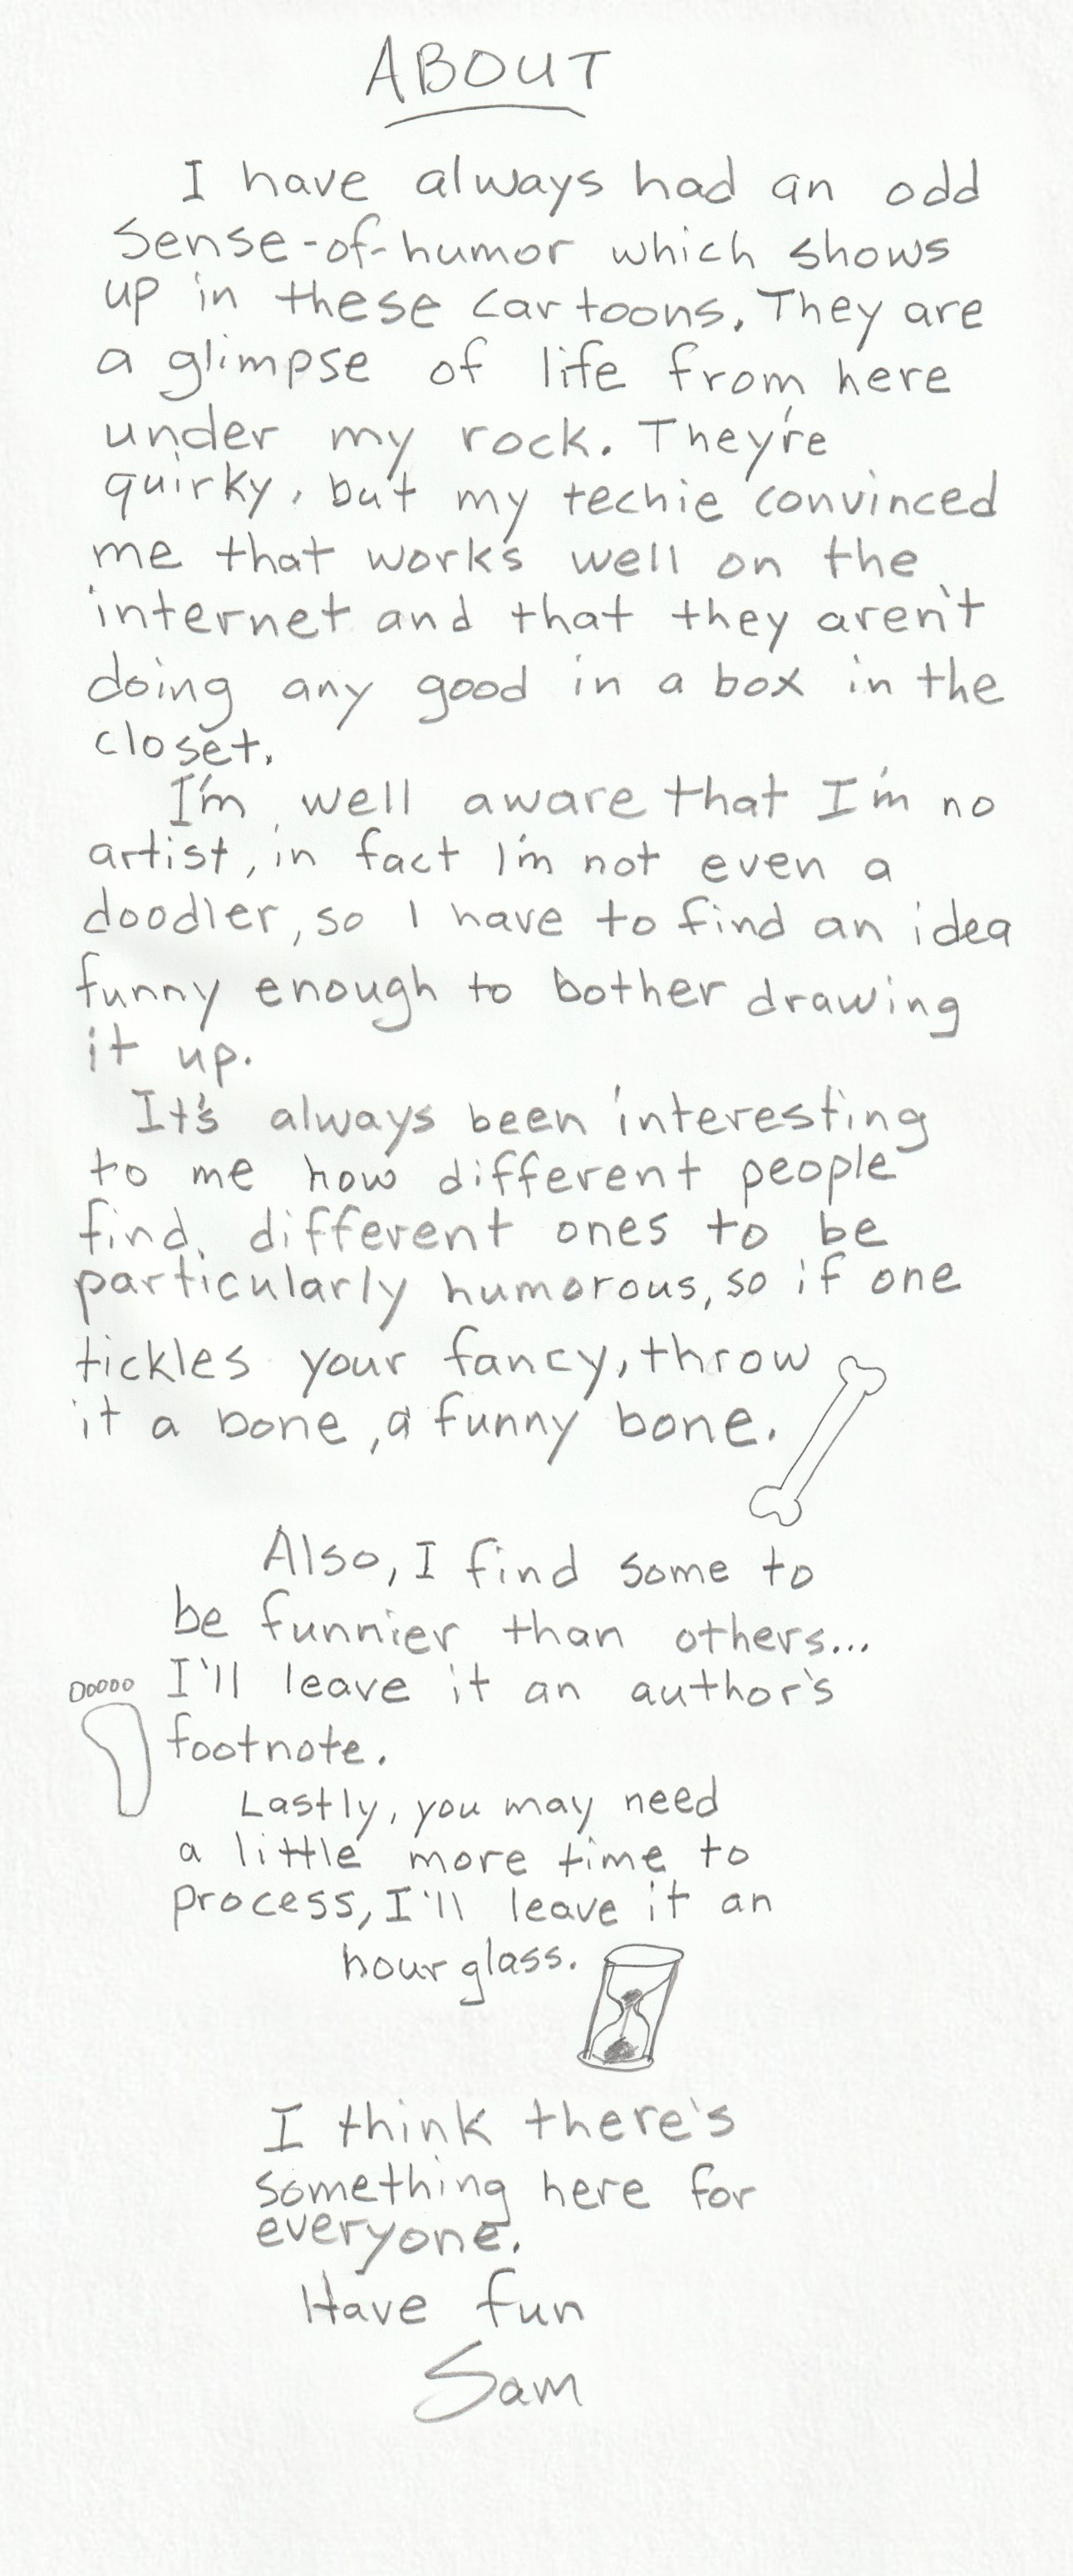 ABOUT
I have always had an odd
sense-of-humor which shows
up in these cartoons. They are
a glimpse of life from here
under my rock. They're
quirky, but my techie convinced
me that works well on the
internet and that they aren't
doing any good in a box in the
closet.
I'm well aware that I'm no
artist, in fact I'm not even a
doodler, so I have to find an idea
funny enough to bother drawing
it up.
It's always been interesting
to me how different people
find different ones to be
particularly humorous, so if one
tickles your fancy, throw
it a bone, a funny bone.
Also, I find some to
be funnier than others...
I'll leave it an author's
footnote.
Lastly, you may need
a little more time to
process, I'll leave it an
hour glass.
I think there's
something here for
everyone.
Have fun
Sam